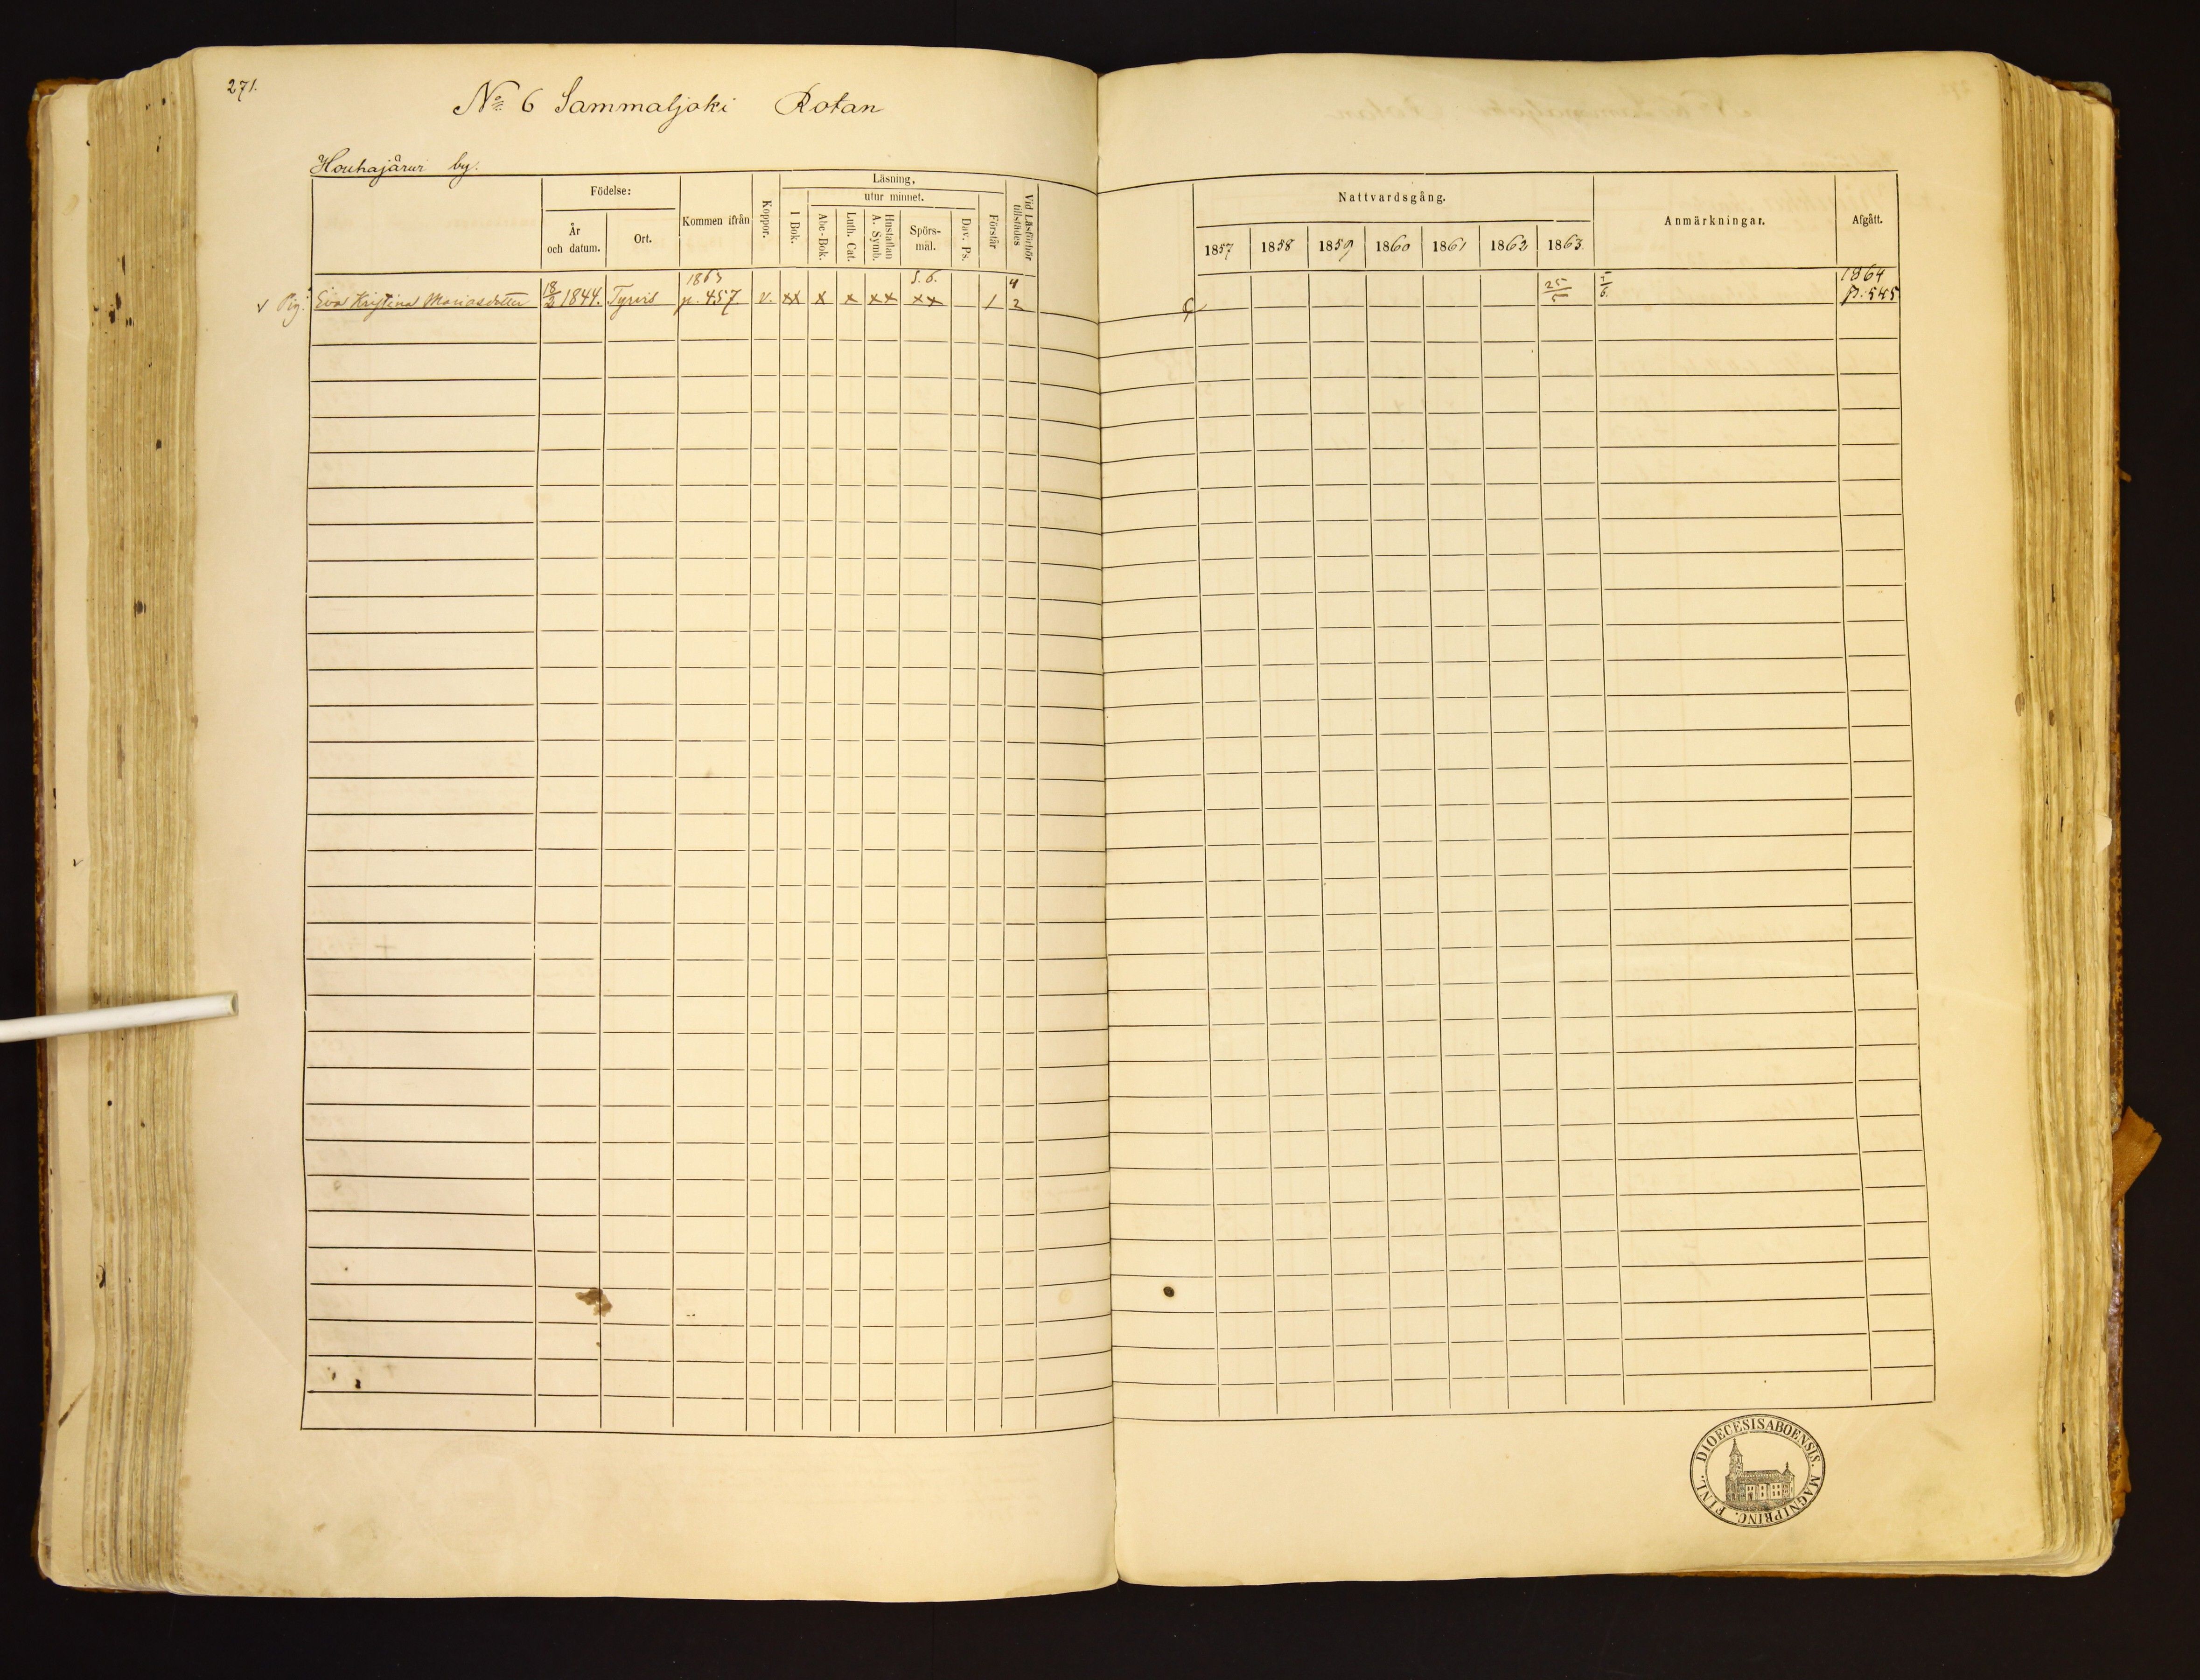 271.
No 6 Sammaljoki Rotan
Houhajärvi by.
Födelse:
År och datum.
Ort.
Kommen ifrån
Koppor.
Läsning,
I Bok.
utur minnet.
Abc-Bok.
Luth. Cat.
Hustaflan A. Symb.
Spörsmål.
Dav. Ps.
Förstår
Vid Läsförhör tillstädes
Nattvardsgång.
1857 1858 1859 1860 1861 1862 1863.
Anmärkningar.
Afgått.
v Pig: Eva Kristina Mariasdotter 18/2 1844. Tyrvis 1863 p. 457 v. xx x x xx S.6. xx 1 4 2 25/5 5/6. 1864 p. 545
FINL. DIOECESIS ABOENSIS. MAGNI PRINC.